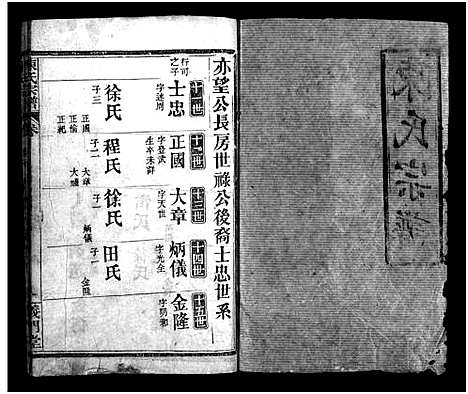 陳氏宗譜
亦望公長房世祿公後裔士忠世系
十一世
行可之子
士忠
字述周
徐氏
子三
正國
正愉
正祀
十二世
正國
字登武
生卒未詳
程氏
子二
大章
十三世
大章
字天世
徐氏
子一
炳儀
十四世
炳儀
字光全
田氏
子一
金隆
十五世
金隆
陳氏宗譜
義門堂